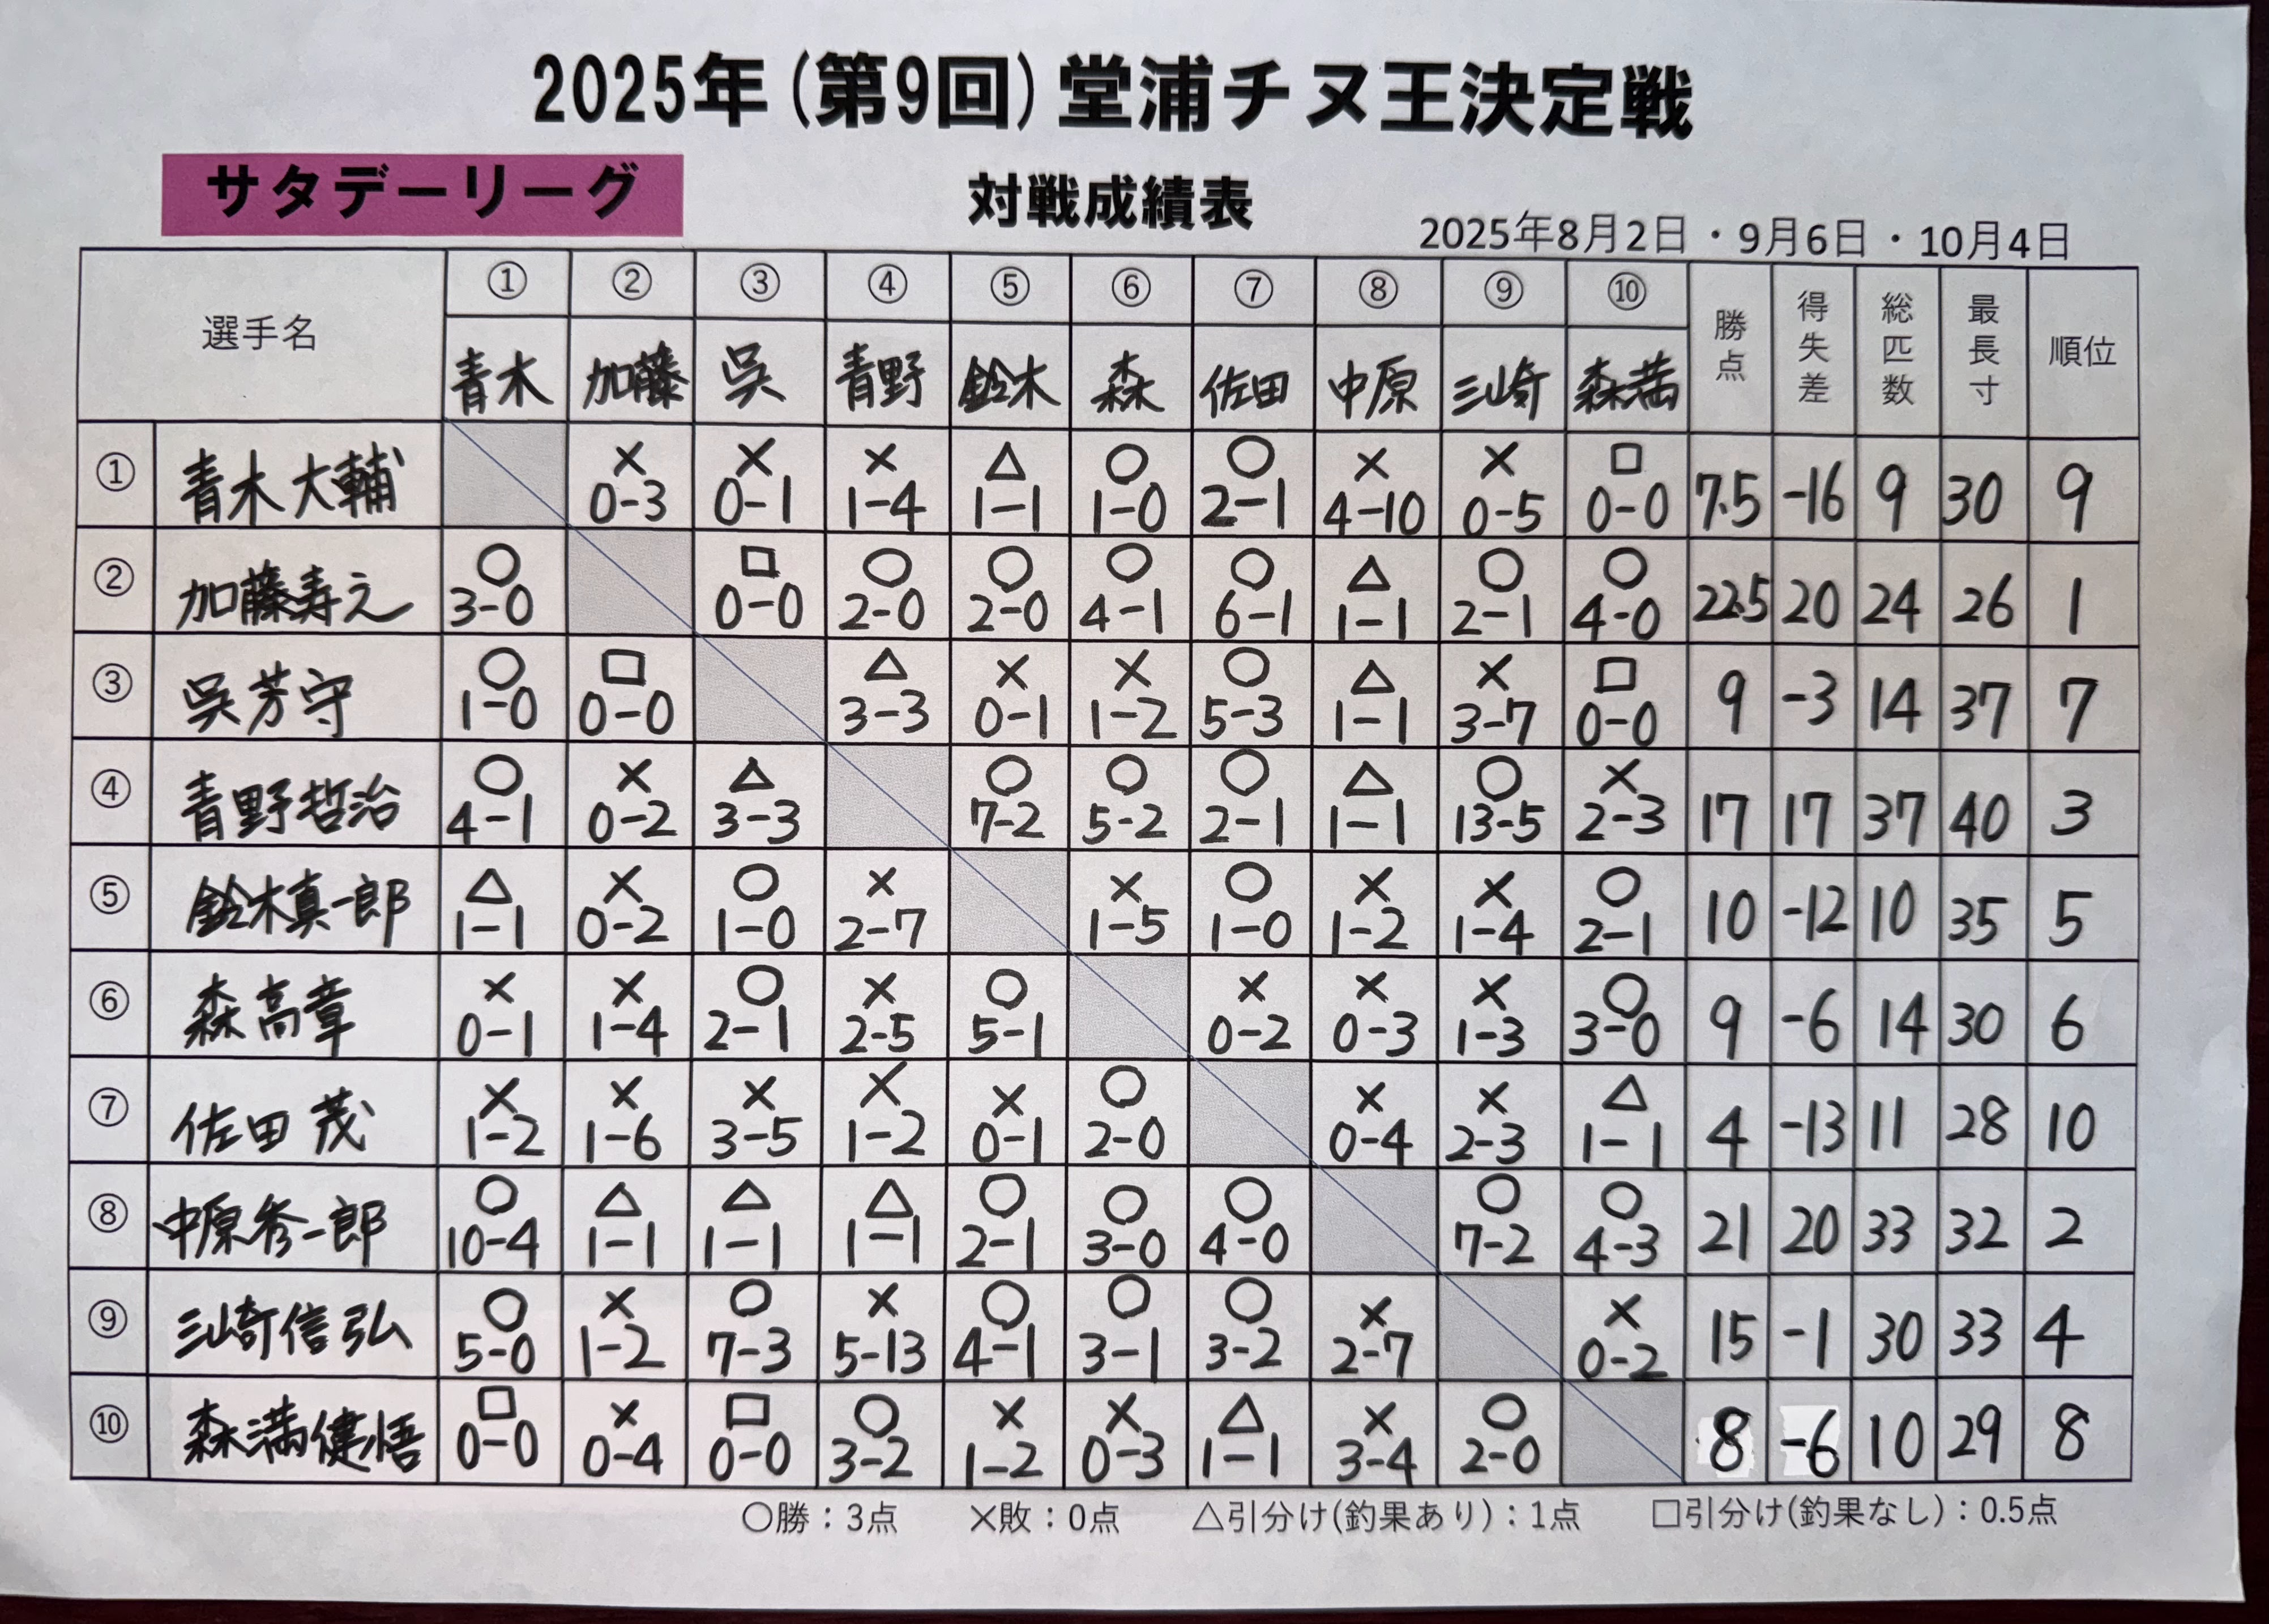 2025年(第9回)堂浦チヌ王決定戦
サタデーリーグ 対戦成績表 2025年8月2日・9月6日・10月4日
選手名 ① ② ③ ④ ⑤ ⑥ ⑦ ⑧ ⑨ ⑩ 勝点 得失差 総匹数 最長寸 順位
青木 加藤 呉 青野 鈴木 森 佐田 中原 三崎 森満
① 青木大輔 × 0-3 × 0-1 × 1-4 △ 1-1 ○ 1-0 ○ 2-1 × 4-10 × 0-5 □ 0-0 7.5 -16 9 30 9
② 加藤寿之 ○ 3-0 □ 0-0 ○ 2-0 ○ 2-0 ○ 4-1 ○ 6-1 △ 1-1 ○ 2-1 ○ 4-0 22.5 20 24 26 1
③ 呉芳守 ○ 1-0 □ 0-0 △ 3-3 × 0-1 × 1-2 ○ 5-3 △ 1-1 × 3-7 □ 0-0 9 -3 14 37 7
④ 青野哲治 ○ 4-1 × 0-2 △ 3-3 ○ 7-2 ○ 5-2 ○ 2-1 △ 1-1 ○ 13-5 × 2-3 17 17 37 40 3
⑤ 鈴木真一郎 △ 1-1 × 0-2 ○ 1-0 × 2-7 × 1-5 ○ 1-0 × 1-2 × 1-4 ○ 2-1 10 -12 10 35 5
⑥ 森高章 × 0-1 × 1-4 ○ 2-1 × 2-5 ○ 5-1 × 0-2 × 0-3 × 1-3 ○ 3-0 9 -6 14 30 6
⑦ 佐田茂 × 1-2 × 1-6 × 3-5 × 1-2 × 0-1 ○ 2-0 × 0-4 × 2-3 △ 1-1 4 -13 11 28 10
⑧ 中原秀一郎 ○ 10-4 △ 1-1 △ 1-1 △ 1-1 ○ 2-1 ○ 3-0 ○ 4-0 ○ 7-2 ○ 4-3 21 20 33 32 2
⑨ 三崎信弘 ○ 5-0 × 1-2 ○ 7-3 × 5-13 ○ 4-1 ○ 3-1 ○ 3-2 × 2-7 × 0-2 15 -1 30 33 4
⑩ 森満健悟 □ 0-0 × 0-4 □ 0-0 ○ 3-2 × 1-2 × 0-3 △ 1-1 × 3-4 ○ 2-0 8 -6 10 29 8
○勝:3点 ×敗:0点 △引分け(釣果あり):1点 □引分け(釣果なし):0.5点